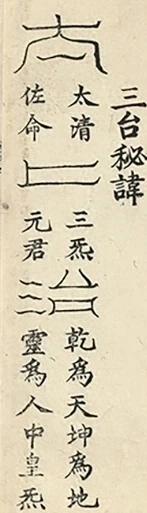 三台秘諱
太清
佐命
三炁
元君
乾為天坤為地
靈為人中皇炁